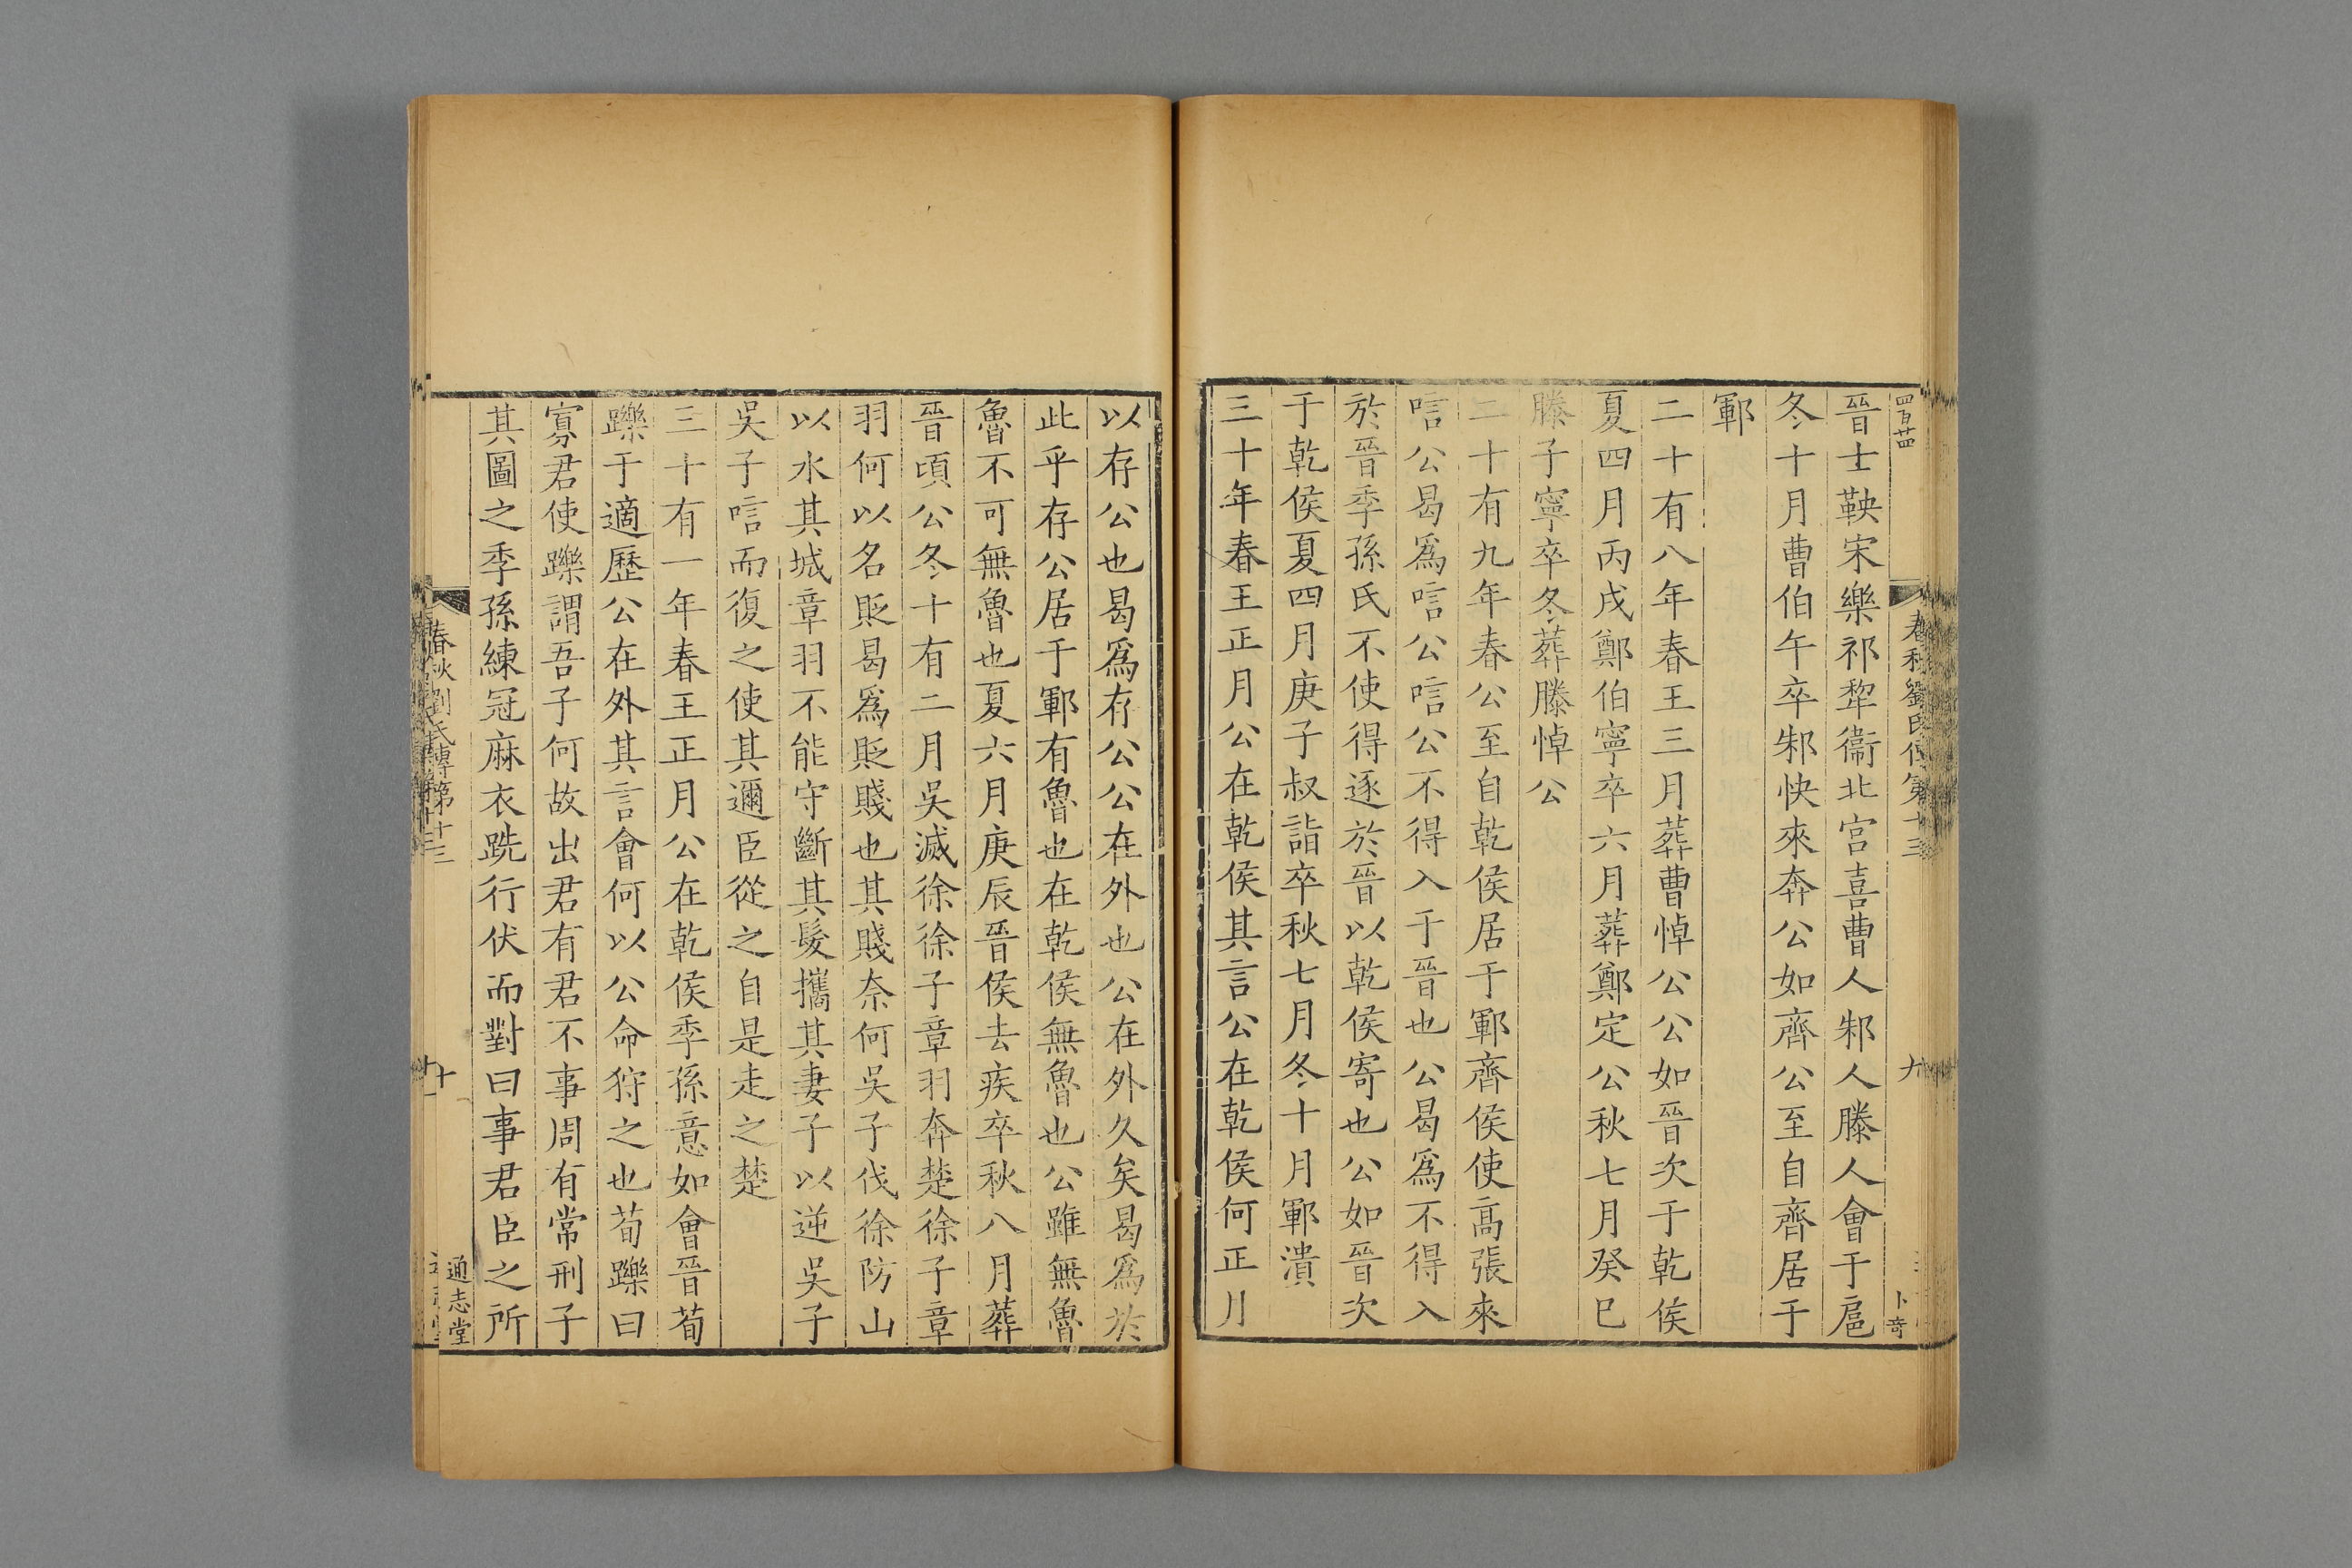 四百廿四
春秋劉氏傳第十三
九
卜奇
晉士鞅宋樂祁犂衞北宮喜曹人邾人滕人會于扈
冬十月曹伯午卒邾快來奔公如齊公至自齊居于
鄆
二十有八年春王三月葬曹悼公公如晉次于乾侯
夏四月丙戌鄭伯寧卒六月葬鄭定公秋七月癸巳
滕子寧卒冬葬滕悼公
二十有九年春公至自乾侯居于鄆齊侯使高張來
唁公曷爲唁公唁公不得入于晉也公曷爲不得入
於晉季孫氏不使得逐於晉以乾侯寄也公如晉次
于乾侯夏四月庚子叔詣卒秋七月冬十月鄆潰
三十年春王正月公在乾侯其言公在乾侯何正月
以存公也曷爲存公公在外也公在外久矣曷爲於
此乎存公居于鄆有魯也在乾侯無魯也公雖無魯
魯不可無魯也夏六月庚辰晉侯去疾卒秋八月葬
晉頃公冬十有二月吳滅徐徐子章羽奔楚徐子章
羽何以名貶曷爲貶賤也其賤奈何吳子伐徐防山
以水其城章羽不能守斷其髮攜其妻子以逆吳子
吳子唁而復之使其邇臣從之自是走之楚
三十有一年春王正月公在乾侯季孫意如會晉荀
躒于適歷公在外其言會何以公命狩之也荀躒曰
寡君使躒謂吾子何故出君有君不事周有常刑子
其圖之季孫練冠麻衣跣行伏而對曰事君臣之所
春秋劉氏傳第十三
十
通志堂